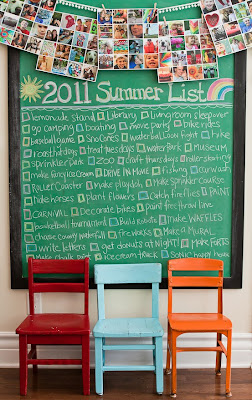 2011 Summer List
lemonade stand Library livingroom sleepover
go camping boating movie parks bike rides
baseball game Sno Cones water balloon fight hike
roast hot dogs treat tuesdays water Park museum
sprinkler park zoo craft thursdays rollerskating
make fancy Ice Cream Drive IN MOVIE fishing carwash
Roller Coaster make playdoh make sprinkler course
ride horses plant flowers Catch fireflies PAINT
CARNIVAL decorate bikes paint free throw lane
bowling tournament Build Robots make WAFFLES
chase country waterfall fire works Make a MURAL
write letters get donuts at Night! Make FORTS
Make chalk paint ice cream truck Sonic happy hour